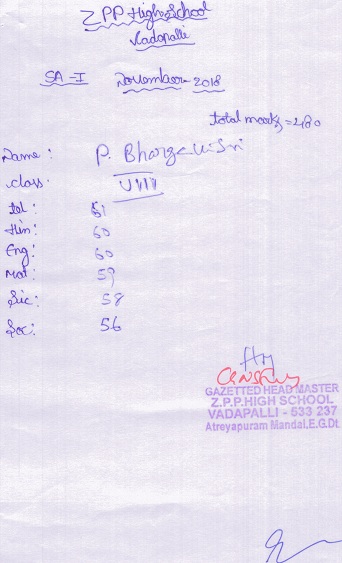 ZPP High School
Vadapalli
SA-I November-2018
total marks=480
Name: P. Bhargavi Sri
class: VIII
tel: 61
Hin: 60
Eng: 60
Mat: 59
Sic: 58
Soc: 56
GAZETTED HEAD MASTER
Z.P.P.HIGH SCHOOL
VADAPALLI - 533 237
Atreyapuram Mandal,E.G.Dt